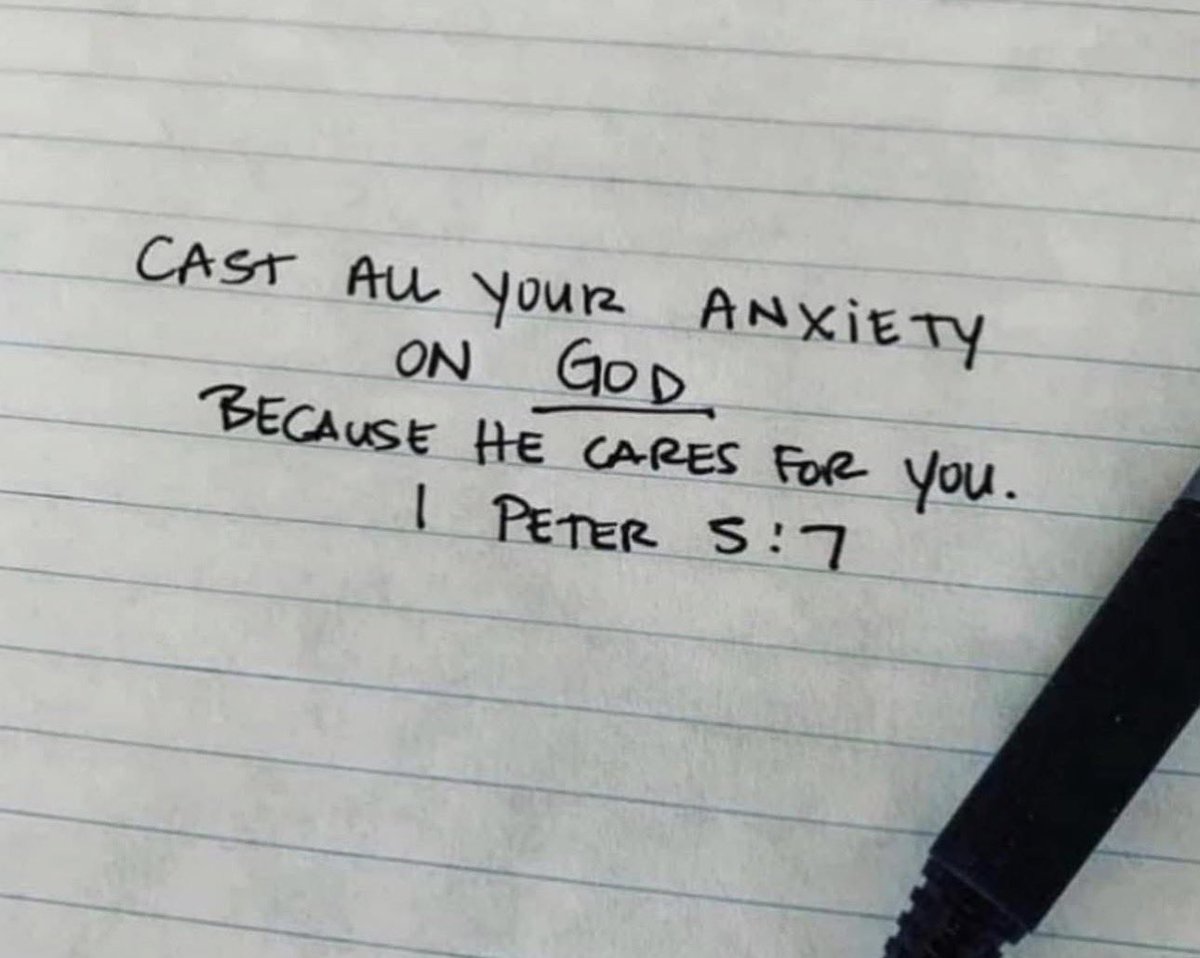 CAST ALL YOUR ANXiETY
ON GOD
BECAUSE HE CARES FOR YOU.
1 PETER 5:7